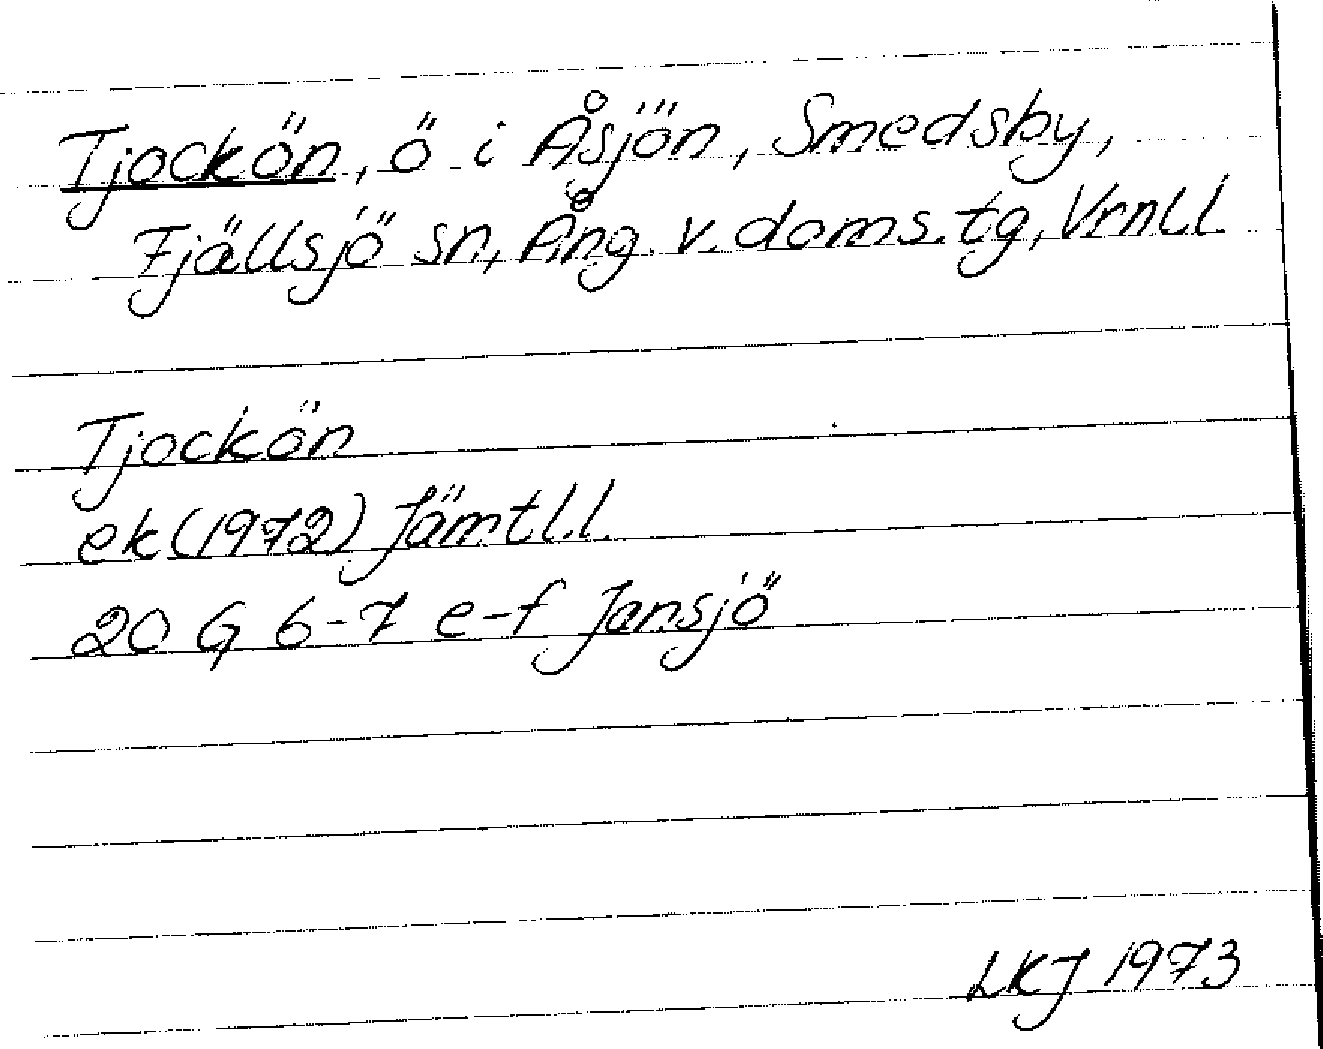 Tjockön, ö i Åsjön, Smedsby,
Fjällsjö sn, Ång. v. doms. tg, Vrnl.l.
Tjockön
ek (1972) Jämtl.l.
20 G 6-7 e-f Jansjö
LKJ 1973